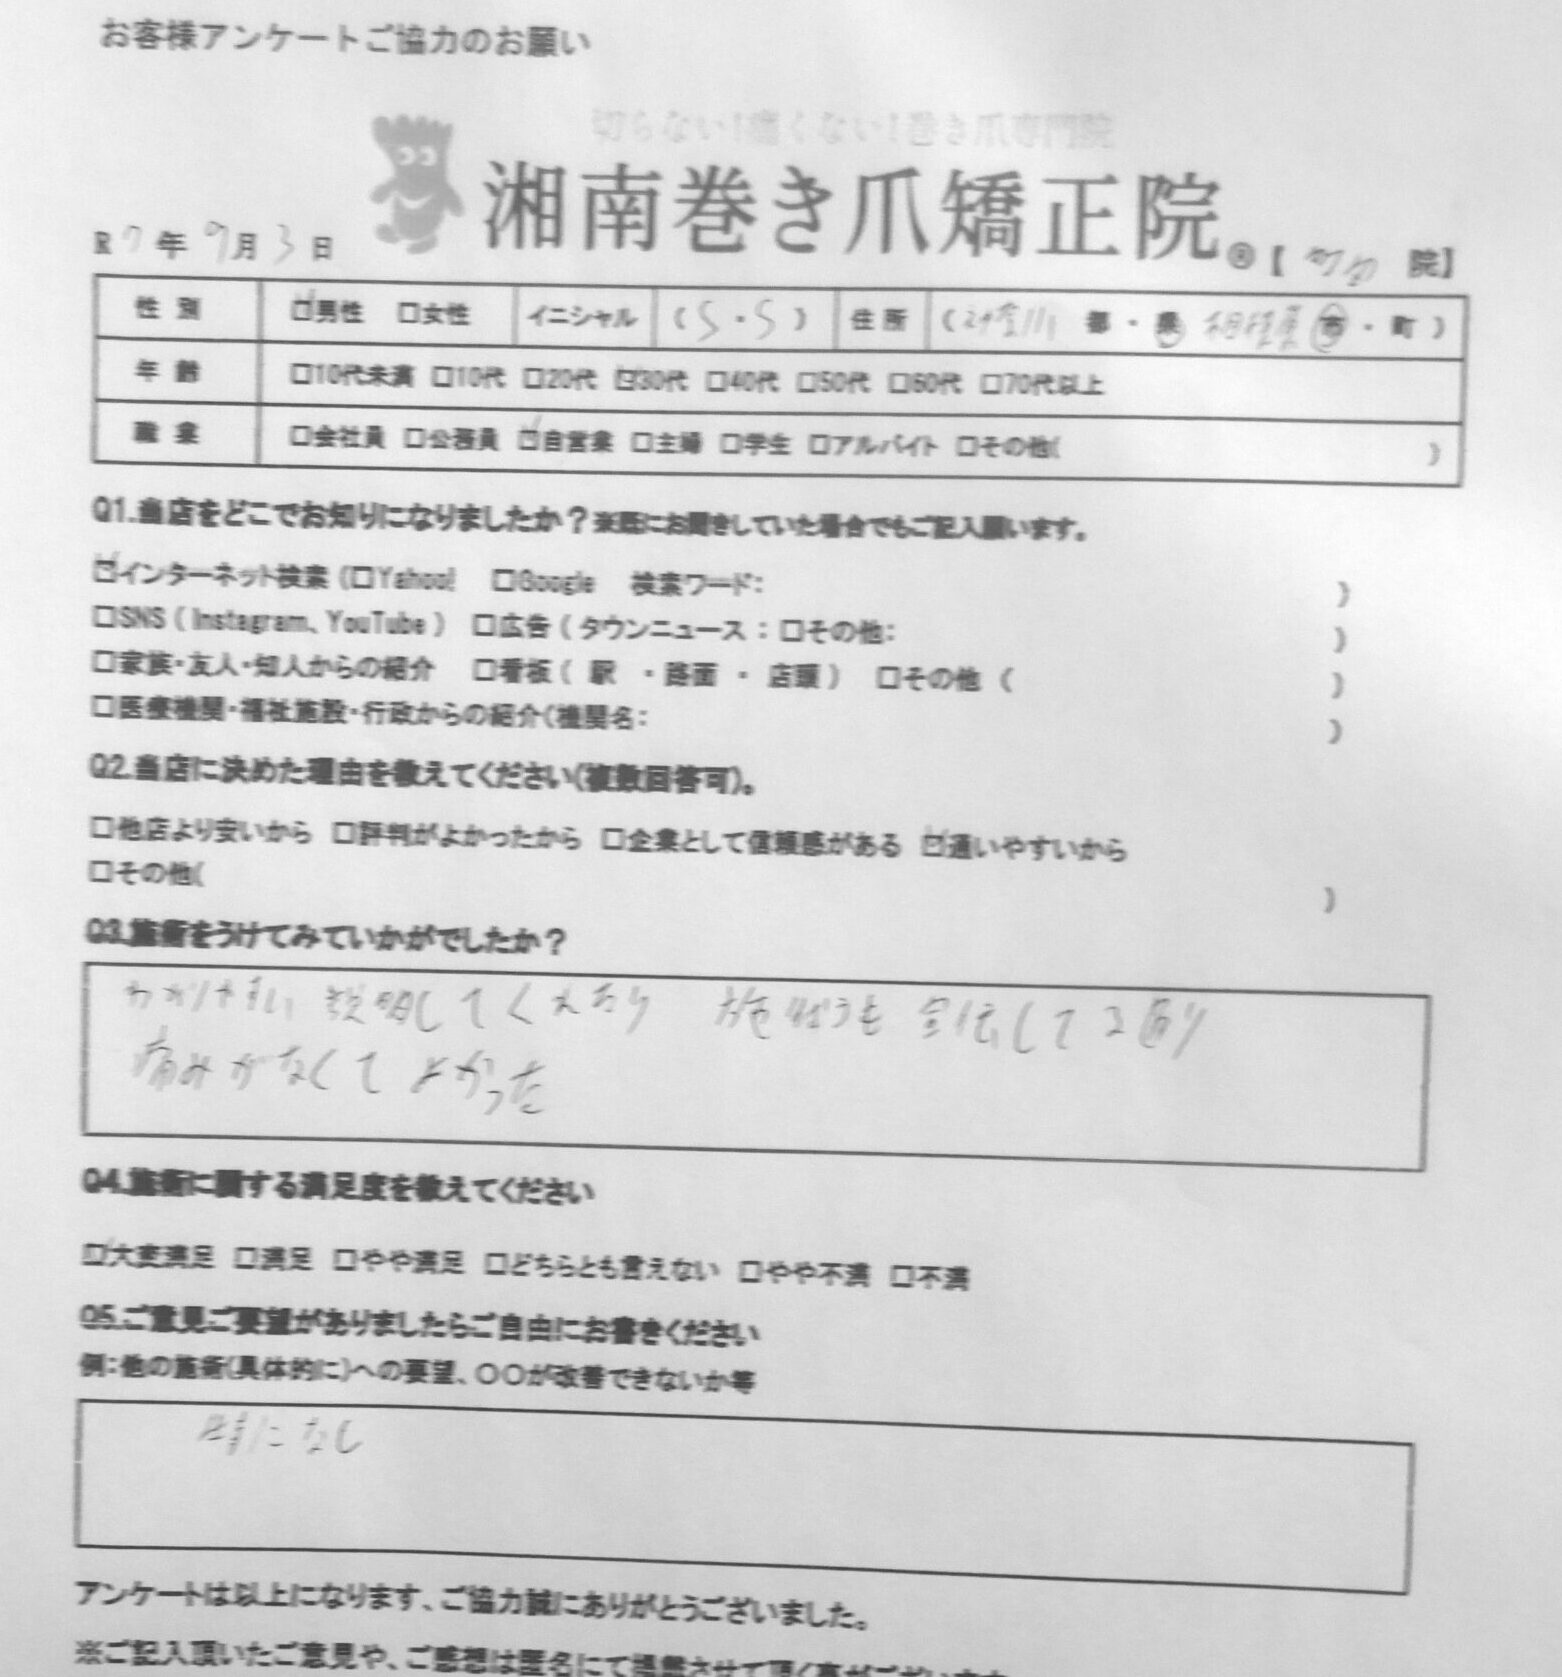 お客様アンケートご協力のお願い
切らない!痛くない!巻き爪専門院
湘南巻き爪矯正院®【町田 院】
R7年 7月 3日
性別 ☑男性 □女性 イニシャル (S・S) 住所 (神奈川 都・県 相模原 市・町)
年齢 □10代未満 □10代 □20代 ☑30代 □40代 □50代 □60代 □70代以上
職業 □会社員 □公務員 ☑自営業 □主婦 □学生 □アルバイト □その他( )
Q1.当店をどこでお知りになりましたか?※既にお聞きしていた場合でもご記入願います。
☑インターネット検索 (□Yahoo! □Google 検索ワード: )
□SNS ( Instagram、YouTube ) □広告 ( タウンニュース : □その他: )
□家族・友人・知人からの紹介 □看板 ( 駅 ・ 路面 ・ 店頭 ) □その他 ( )
□医療機関・福祉施設・行政からの紹介(機関名: )
Q2.当店に決めた理由を教えてください(複数回答可)。
□他店より安いから □評判がよかったから □企業として信頼感がある ☑通いやすいから
□その他( )
Q3.施術をうけてみていかがでしたか?
わかりやすい 説明してくれており 施術も 宣伝してる通り
痛みがなくて よかった
Q4.施術に関する満足度を教えてください
☑大変満足 □満足 □やや満足 □どちらとも言えない □やや不満 □不満
Q5.ご意見ご要望がありましたらご自由にお書きください
例:他の施術(具体的に)への要望、〇〇が改善できないか等
特になし
アンケートは以上になります、ご協力誠にありがとうございました。
※ご記入頂いたご意見や、ご感想は匿名にて掲載させて頂く事がございます